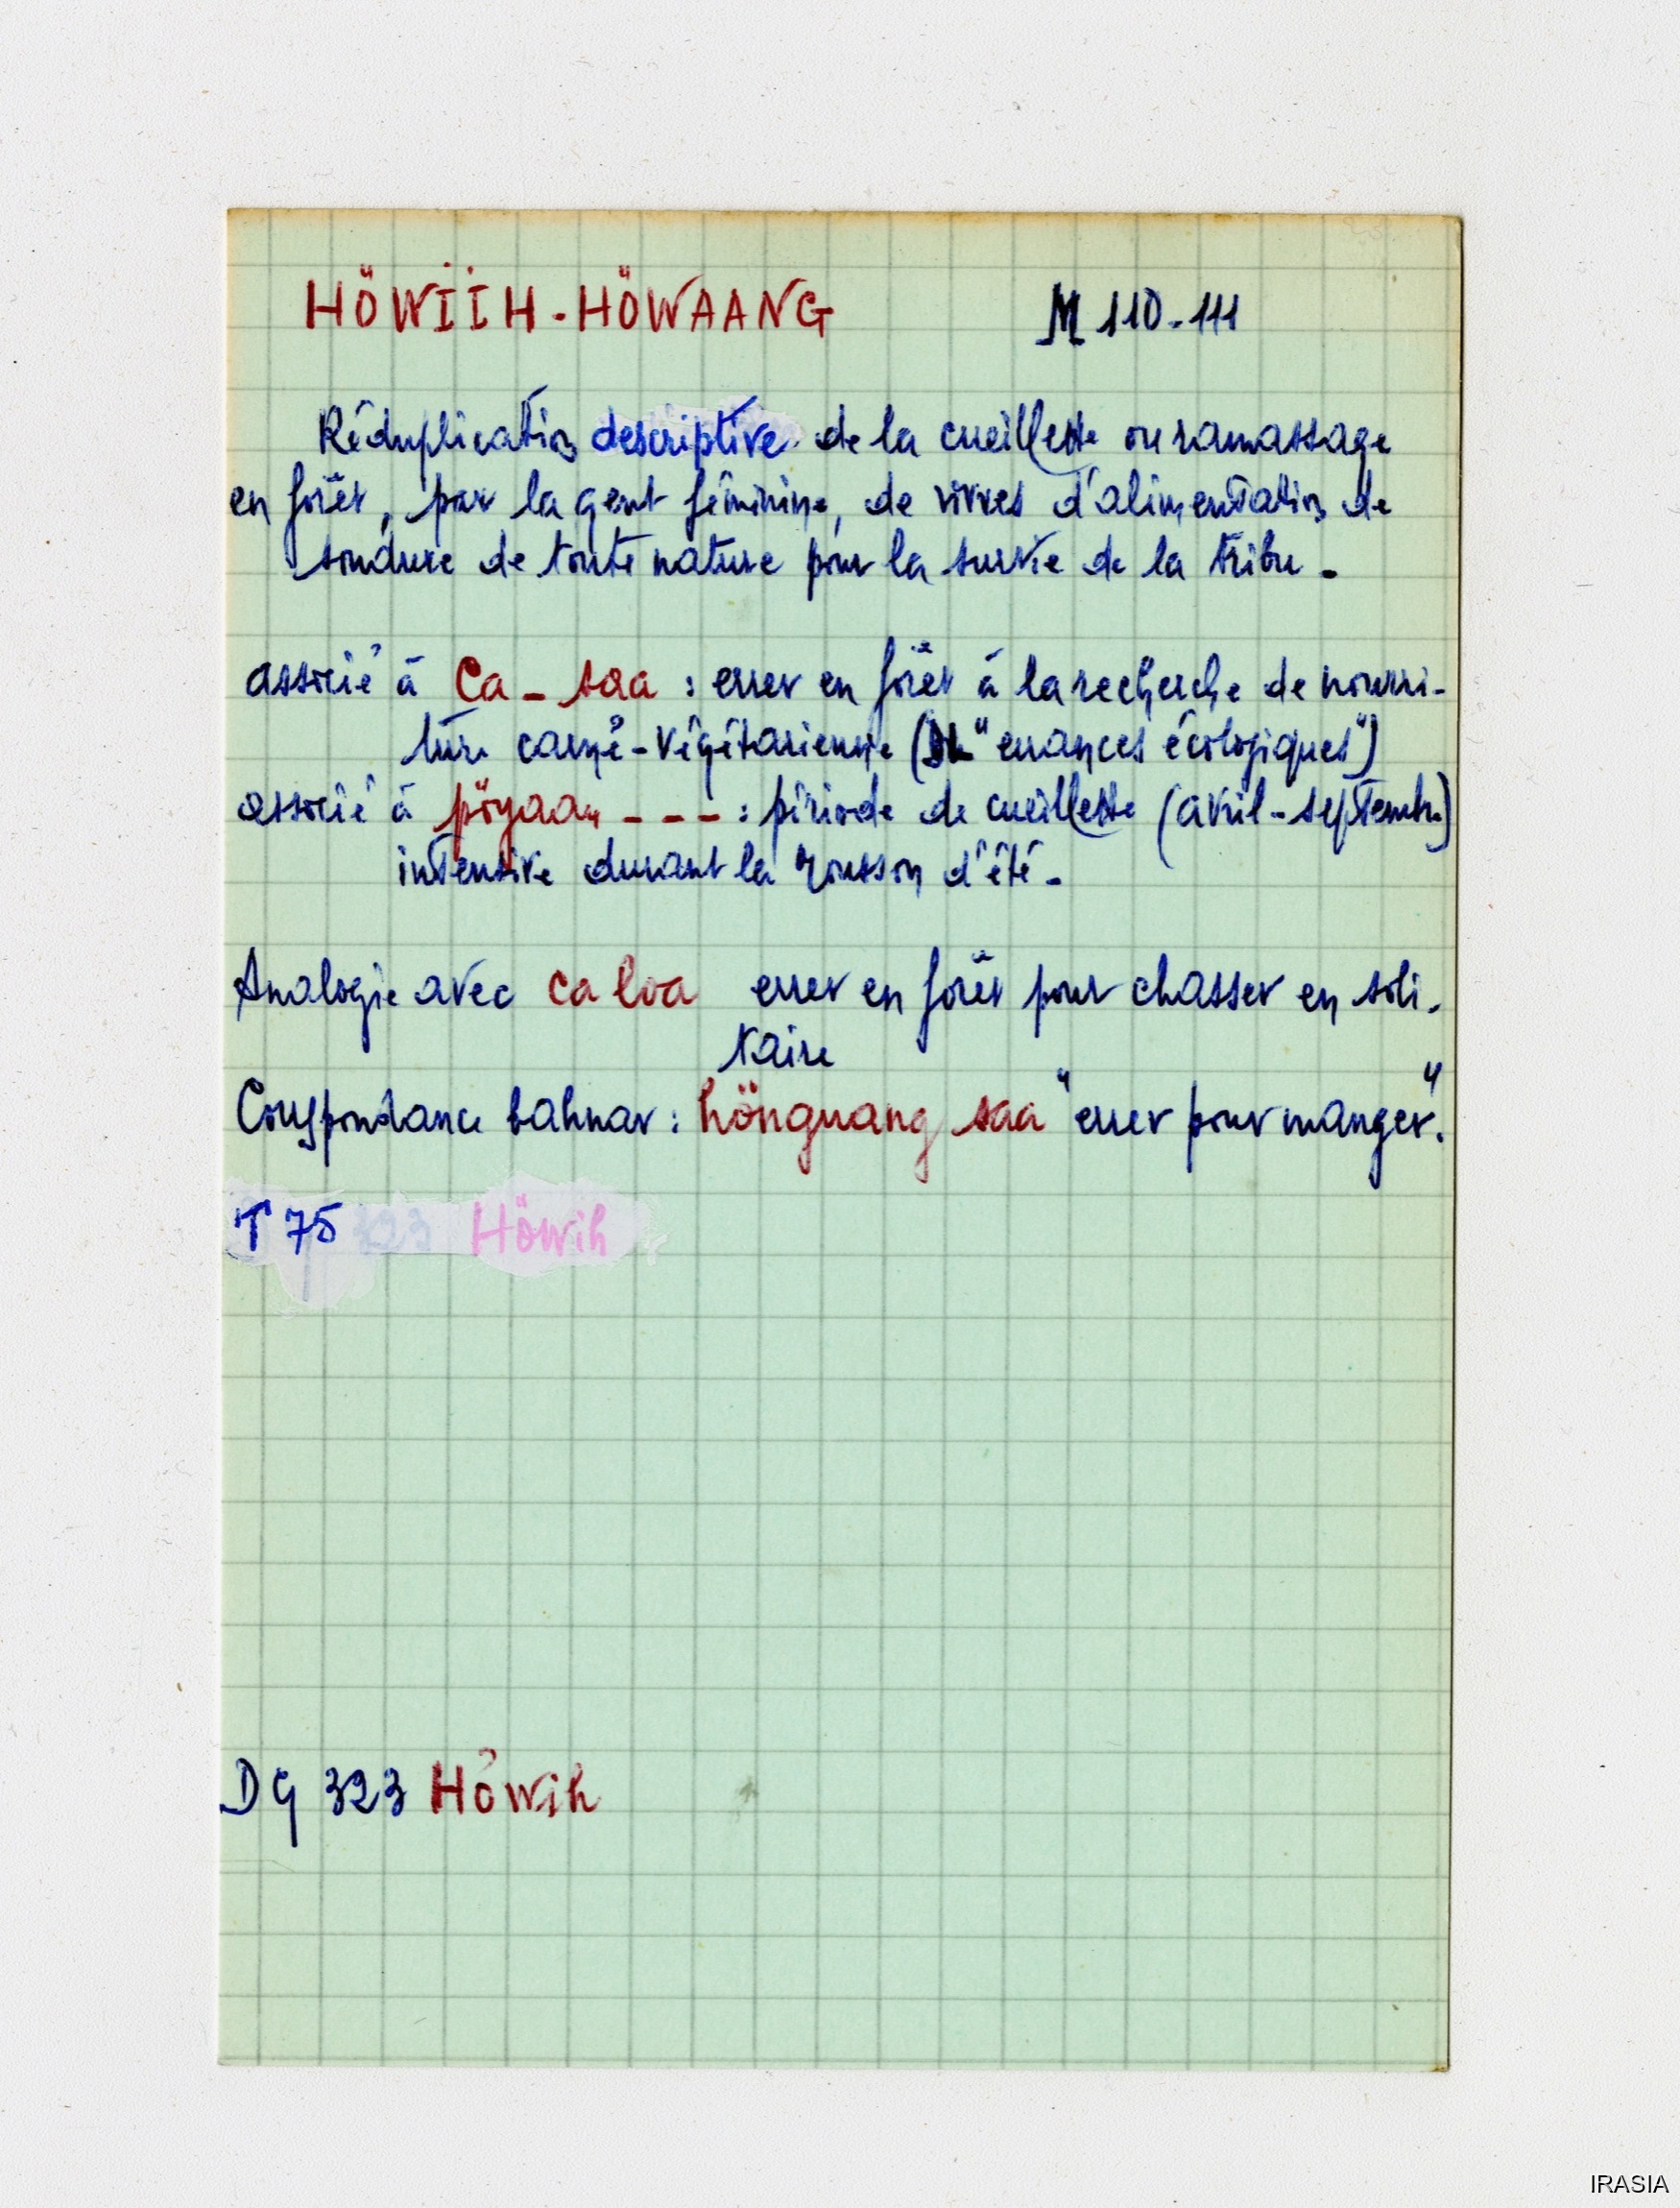 HÖWIIH - HÖWAANG M 110-111
Réduplication descriptive de la cueillette ou ramassage
en forêt, par la gent féminine, de vivres d'alimentation de
soudure de toute nature pour la survie de la tribu -
associé à Ca - saa : errer en forêt à la recherche de nourri-
ture carné-végétarienne ("errances écologiques")
associé à pöyaan - - - : période de cueillette (avril-septembre)
intensive durant la mousson d'été -
Analogie avec ca loa errer en forêt pour chasser en soli-
taire
Correspondance bahnar : hönguang saa "errer pour manger".
T 75 323 Höwih
DG 323 Höwih
IRASIA